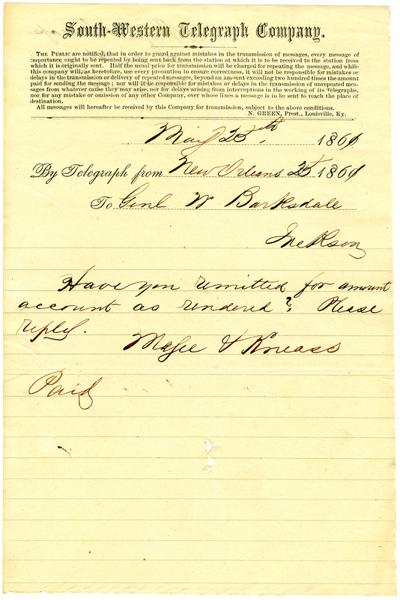 South-Western Telegraph Company.
THE PUBLIC are notified, that in order to guard against mistakes in the transmission of messages, every message of
importance ought to be repeated by being sent back from the station at which it is to be received to the station from
which it is originally sent. Half the usual price for transmission will be charged for repeating the message, and while
this company will, as heretofore, use every precaution to ensure correctness, it will not be responsible for mistakes or
delays in the transmission or delivery of repeated messages, beyond an amount exceeding two hundred times the amount
paid for sending the message; nor will it be responsible for mistakes or delays in the transmission of unrepeated mes-
sages from whatever cause they may arise, nor for delays arising from interruptions in the working of its Telegraphs,
nor for any mistake or omission of any other Company, over whose lines a message is to be sent to reach the place of
destination.
All messages will hereafter be received by this Company for transmission, subject to the above conditions.
N. GREEN, Prest., Louisville, Ky.
May 25th, 1861
By Telegraph from New Orleans 25 1861
To Genl W Barksdale
Jackson
Have you remitted for amount
account as rendered? Please
reply.
Magee & Kneass
Paid